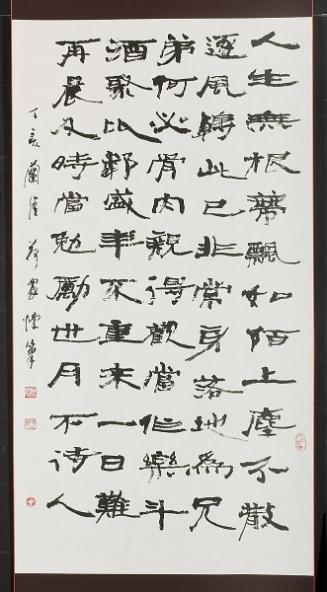 人生無根蒂飄如陌上塵分散
逐風轉此已非常身落地為兄
弟何必骨肉親得歡當作樂斗
酒聚比鄰盛年不重來一日難
再晨及時當勉勵歲月不待人
丁亥蘭